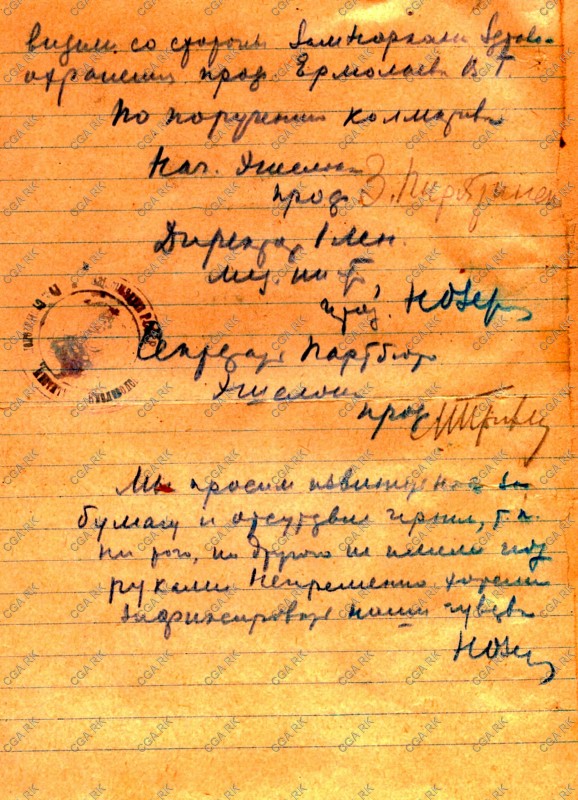 видим. со стороны ЗамНаркома Здраво-
охранения проф. Ермолаева В. Г.
По поручению коллектива
Нач. Эшелона
проф. З.
Директор I Лен.
Мед. ин-та,
проф.
Секретарь Партбюро
Эшелона
проф.
Мы просим извинения за
бумагу и отсутствие чернил, т. к.
ни того, ни другого не имели под
руками. Непременно хотели
зафиксировать наши чувства